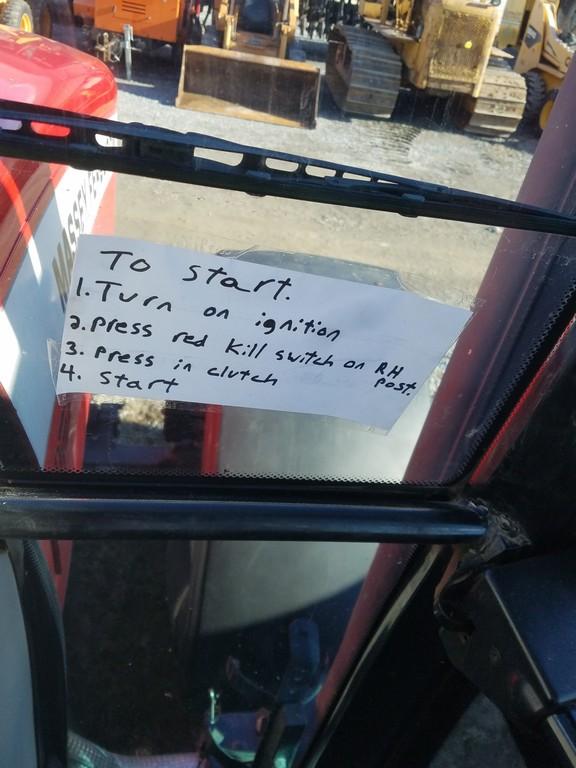 MASSEY
To start.
1. Turn on ignition
2. press red kill switch on RH post.
3. press in clutch
4. start